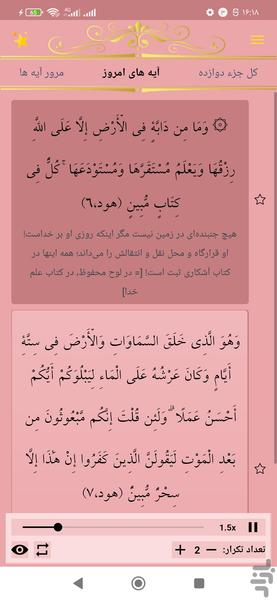 ۱۶:۱۸
65
کل جزء دوازده
آیه های امروز
مرور آیه ها
۞ وَمَا مِن دَابَّةٍ فِي الْأَرْضِ إِلَّا عَلَى اللَّهِ
رِزْقُهَا وَيَعْلَمُ مُسْتَقَرَّهَا وَمُسْتَوْدَعَهَا ۚ كُلٌّ فِي
كِتَابٍ مُّبِينٍ (هود،۶)
هیچ جنبنده‌ای در زمین نیست مگر اینکه روزی او بر خداست!
او قرارگاه و محل نقل و انتقالش را می‌داند؛ همه اینها در
کتاب آشکاری ثبت است! [= در لوح محفوظ، در کتاب علم
خدا]
وَهُوَ الَّذِي خَلَقَ السَّمَاوَاتِ وَالْأَرْضَ فِي سِتَّةِ
أَيَّامٍ وَكَانَ عَرْشُهُ عَلَى الْمَاءِ لِيَبْلُوَكُمْ أَيُّكُمْ
أَحْسَنُ عَمَلًا ۗ وَلَئِن قُلْتَ إِنَّكُم مَّبْعُوثُونَ مِن
بَعْدِ الْمَوْتِ لَيَقُولَنَّ الَّذِينَ كَفَرُوا إِنْ هَٰذَا إِلَّا
سِحْرٌ مُّبِينٌ (هود،۷)
1.5x
تعداد تکرار:
+ 2 −
بازار